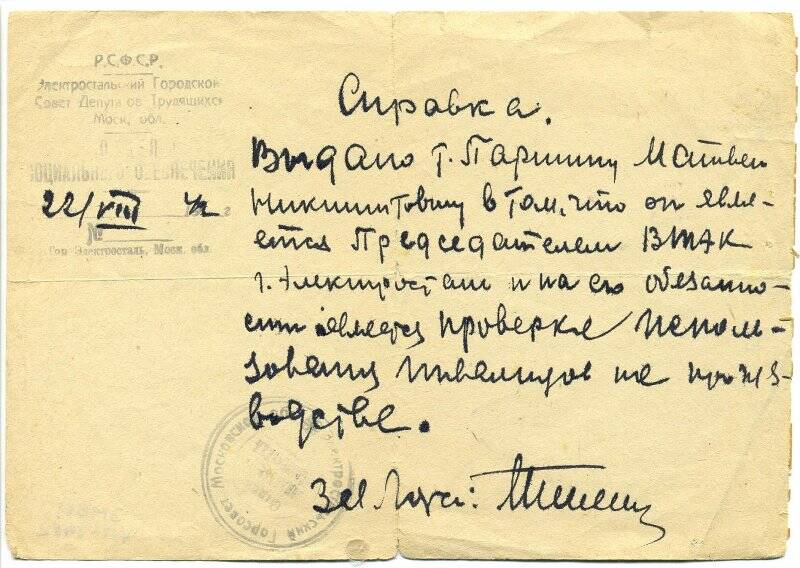 Р.С.Ф.С.Р.
Электростальский Городской
Совет Депутатов Трудящихся
Моск. обл.
СОЦИАЛЬНОГО ОБЕСПЕЧЕНИЯ
22/VIII 42 г
№
Гор. Электросталь, Моск. обл.
Справка.
Выдано т. Паршину Матвею
Никитовичу в том, что он явля-
ется Председателем ВТЭК
г. Электростали и на его обязанно-
сти является проверке исполь-
зования инвалидов на произ-
водстве.
Московской
Горсовет